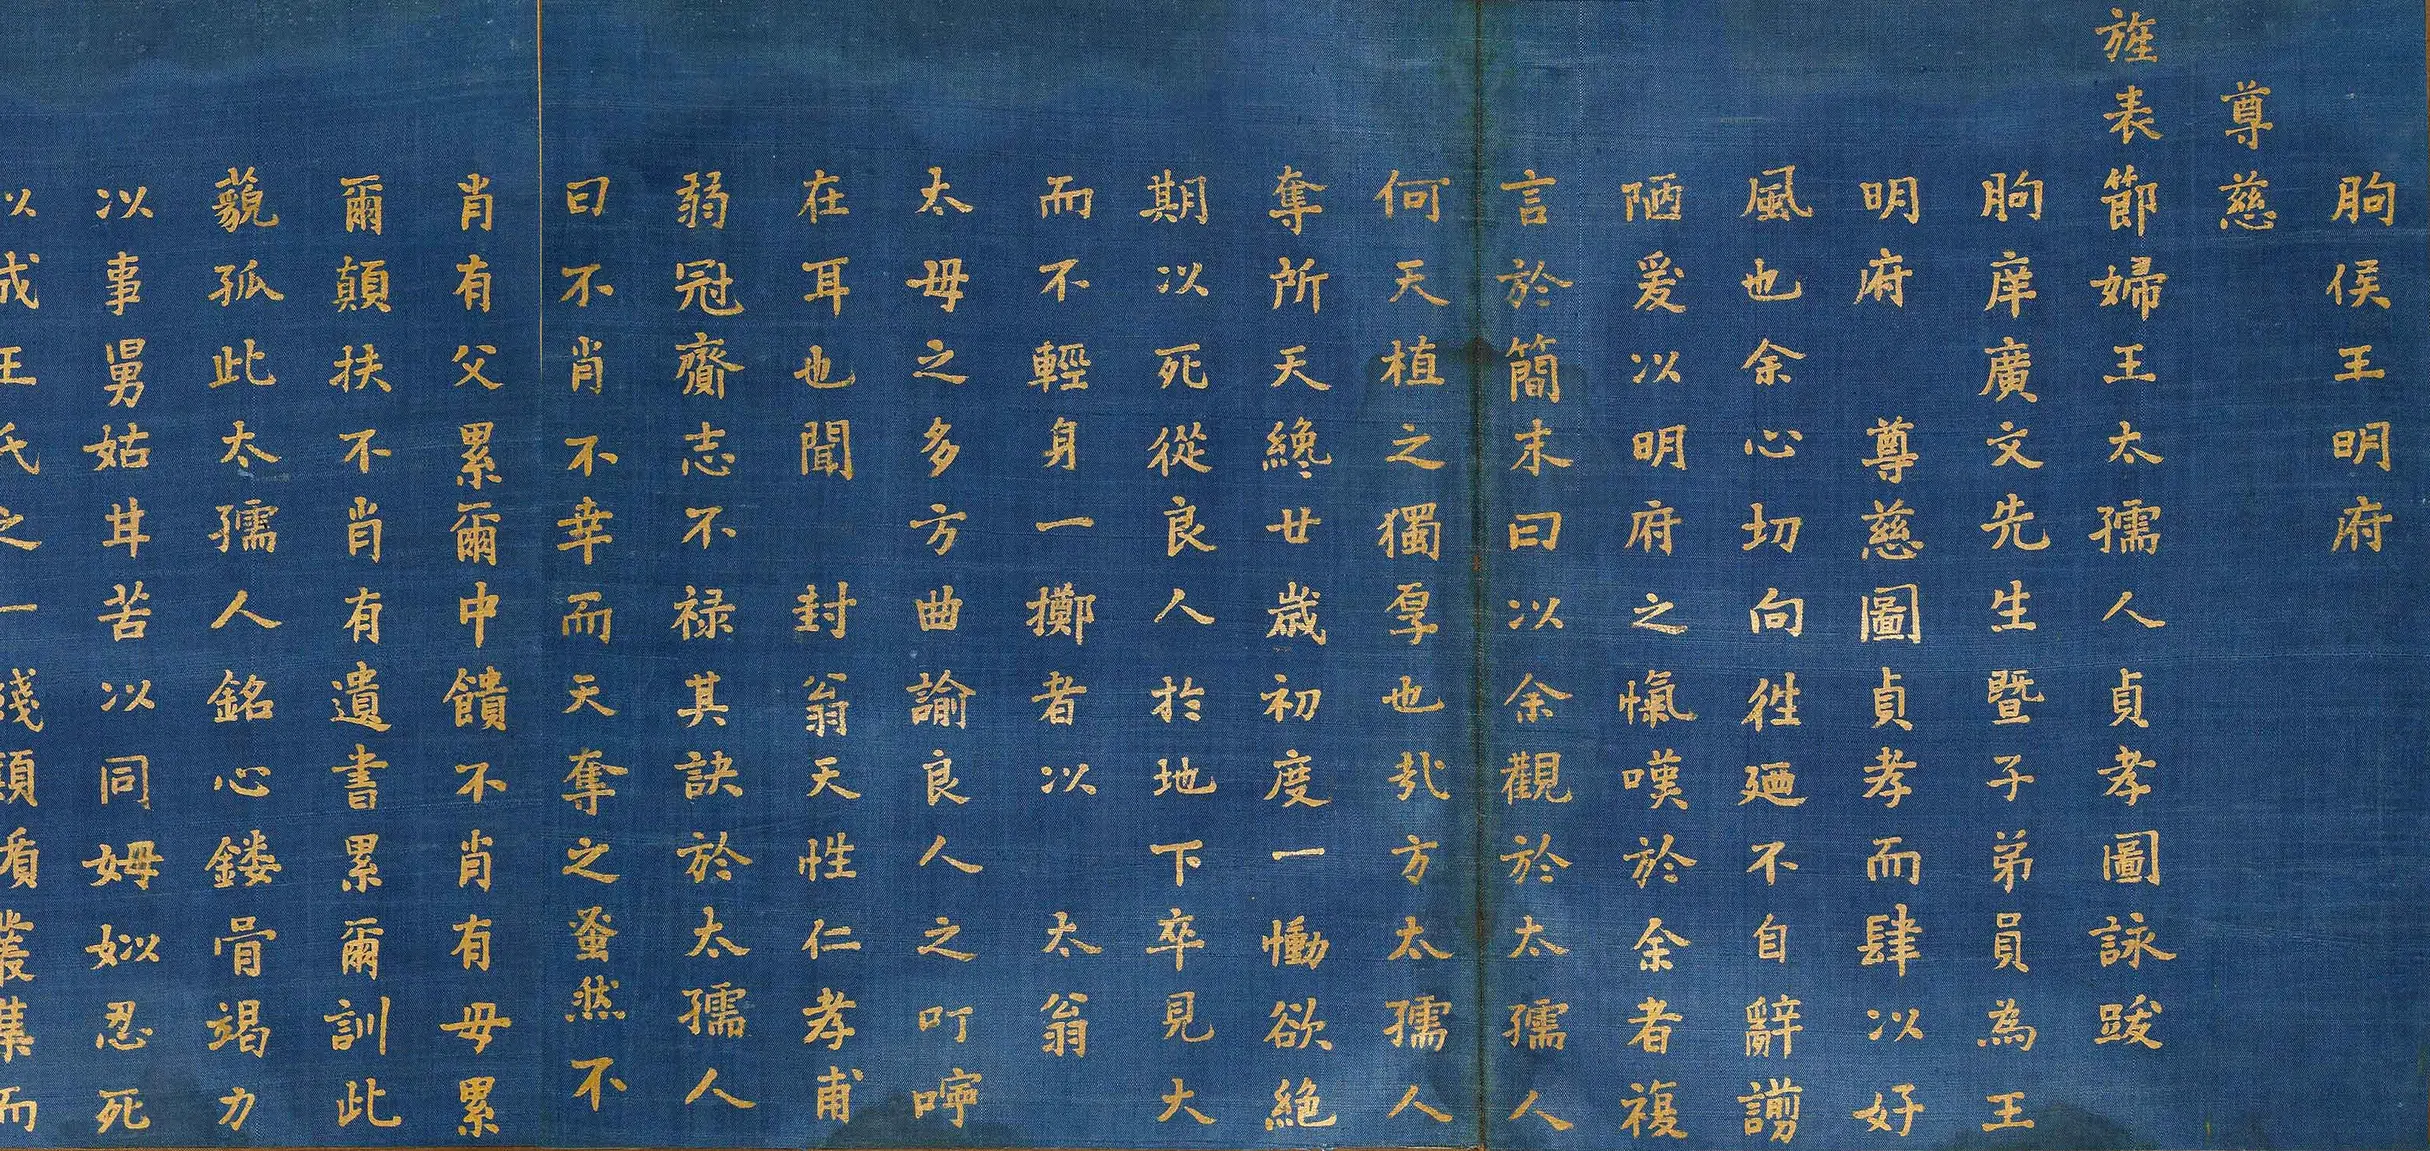 朐侯王明府
尊慈
旌表節婦王太孺人貞孝圖詠跋
朐庠廣文先生暨子弟員為王
明府 尊慈圖貞孝而肆以好
風也余心切向徃廼不自辭謭
陋爰以明府之愾嘆於余者複
言於簡末曰以余觀於太孺人
何天植之獨厚也㢤方太孺人
奪所天纔廿歲初度一慟欲絕
期以死從良人於地下卒見大
而不輕身一擲者以 太翁
太母之多方曲諭良人之叮嚀
在耳也聞 封翁天性仁孝甫
弱冠齎志不禄其訣於太孺人
曰不肖不幸而天奪之蚤然不
肖有父累爾中饋不肖有母累
爾顛扶不肖有遺書累爾訓此
藐孤此太孺人銘心鏤骨竭力
以事舅姑甘苦以同姆姒忍死
以成王氏之一綫頭盾叢集而